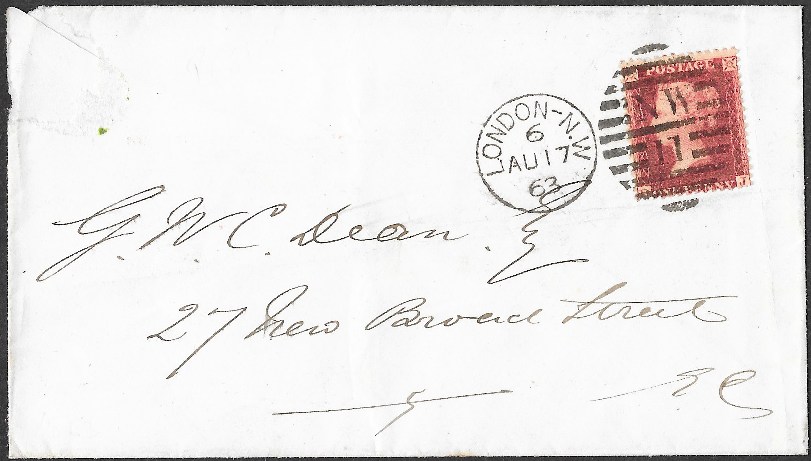 POSTAGE
LONDON-N.W
6
AU 17
63
NW
11
G. W. C. Dean. Esq
27 New Broad Street
E.C